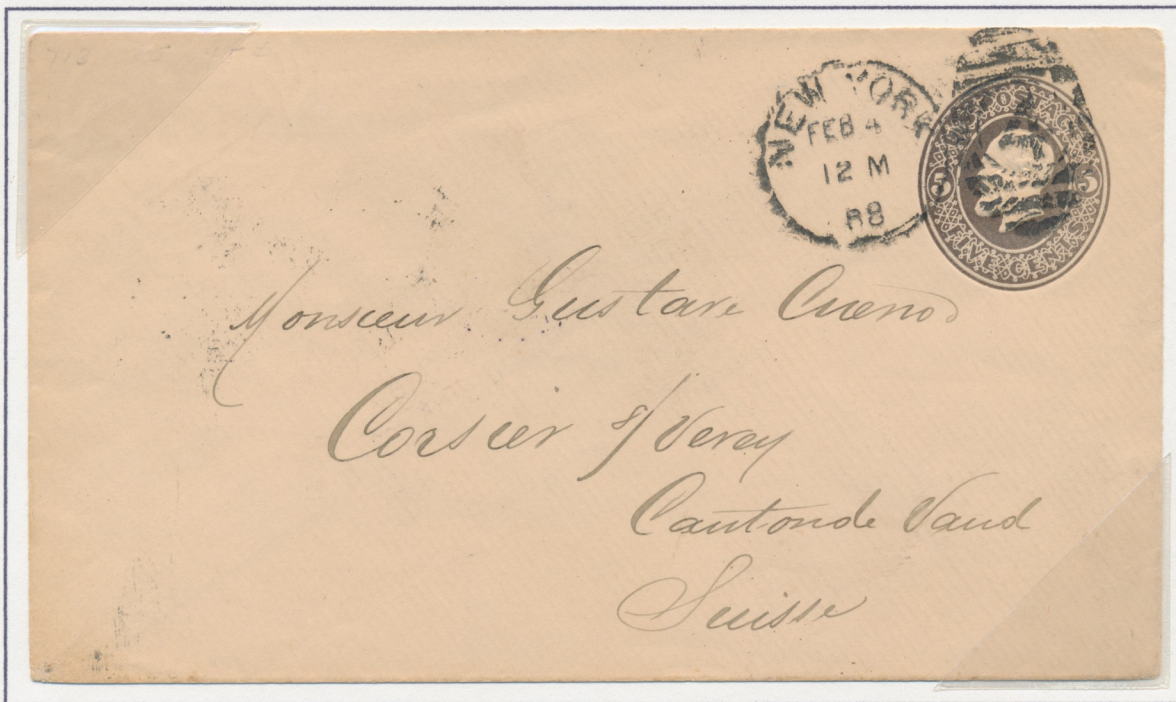 NEW YORK
FEB 4
12 M
88
U.S. POSTAGE
5 5
FIVE CENTS
Monsieur Gustave Cuénod
Corsier s/ Vevey
Canton de Vaud
Suisse